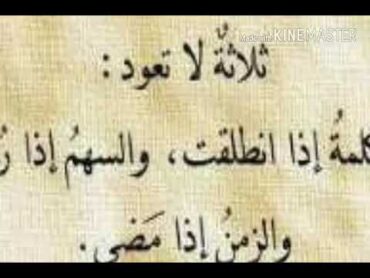 Made with KINEMASTER
ثلاثةٌ لا تعود :
كلمةُ إذا انطلقت، والسهمُ إذا
والزمنُ إذا مَضى.